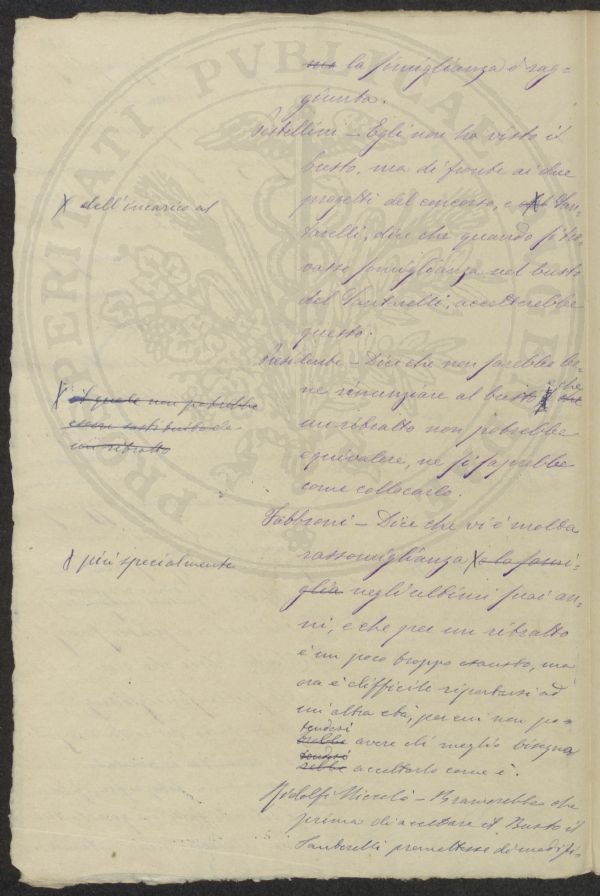 ma la somiglianza è rag=
giunta.
Pestellini – Egli non ha visto il
busto, ma di fronte ai due
progetti del concorso, e X San-
tarelli, dice che quando si tro,
vasse somiglianza nel busto
del Santarelli, accetterebbe
questo.
X dell'incarico al
Presidente – Dice che non sarebbe be-
ne rinunziare al busto X che
un ritratto non potrebbe
equivalere, nè si saprebbe
come collocarlo.
X il quale non potrebbe
essere sostituito da
un ritratto
Fabbroni – Dice che vi è molta
rassomiglianza X e la somi-
glia negli ultimi suoi an-
ni, e che per un ritratto
è un poco troppo esausto, ma
ora è difficile riportarsi ad
un'altra età, per cui non po=
tendosi
avere di meglio bisogna
accettarlo come è.
X più specialmente
Ridolfi Niccolò – Bramerebbe che
prima di accettare il Busto il
Santarelli promettesse di modifi-
PROSPERITATI PVBLICAE